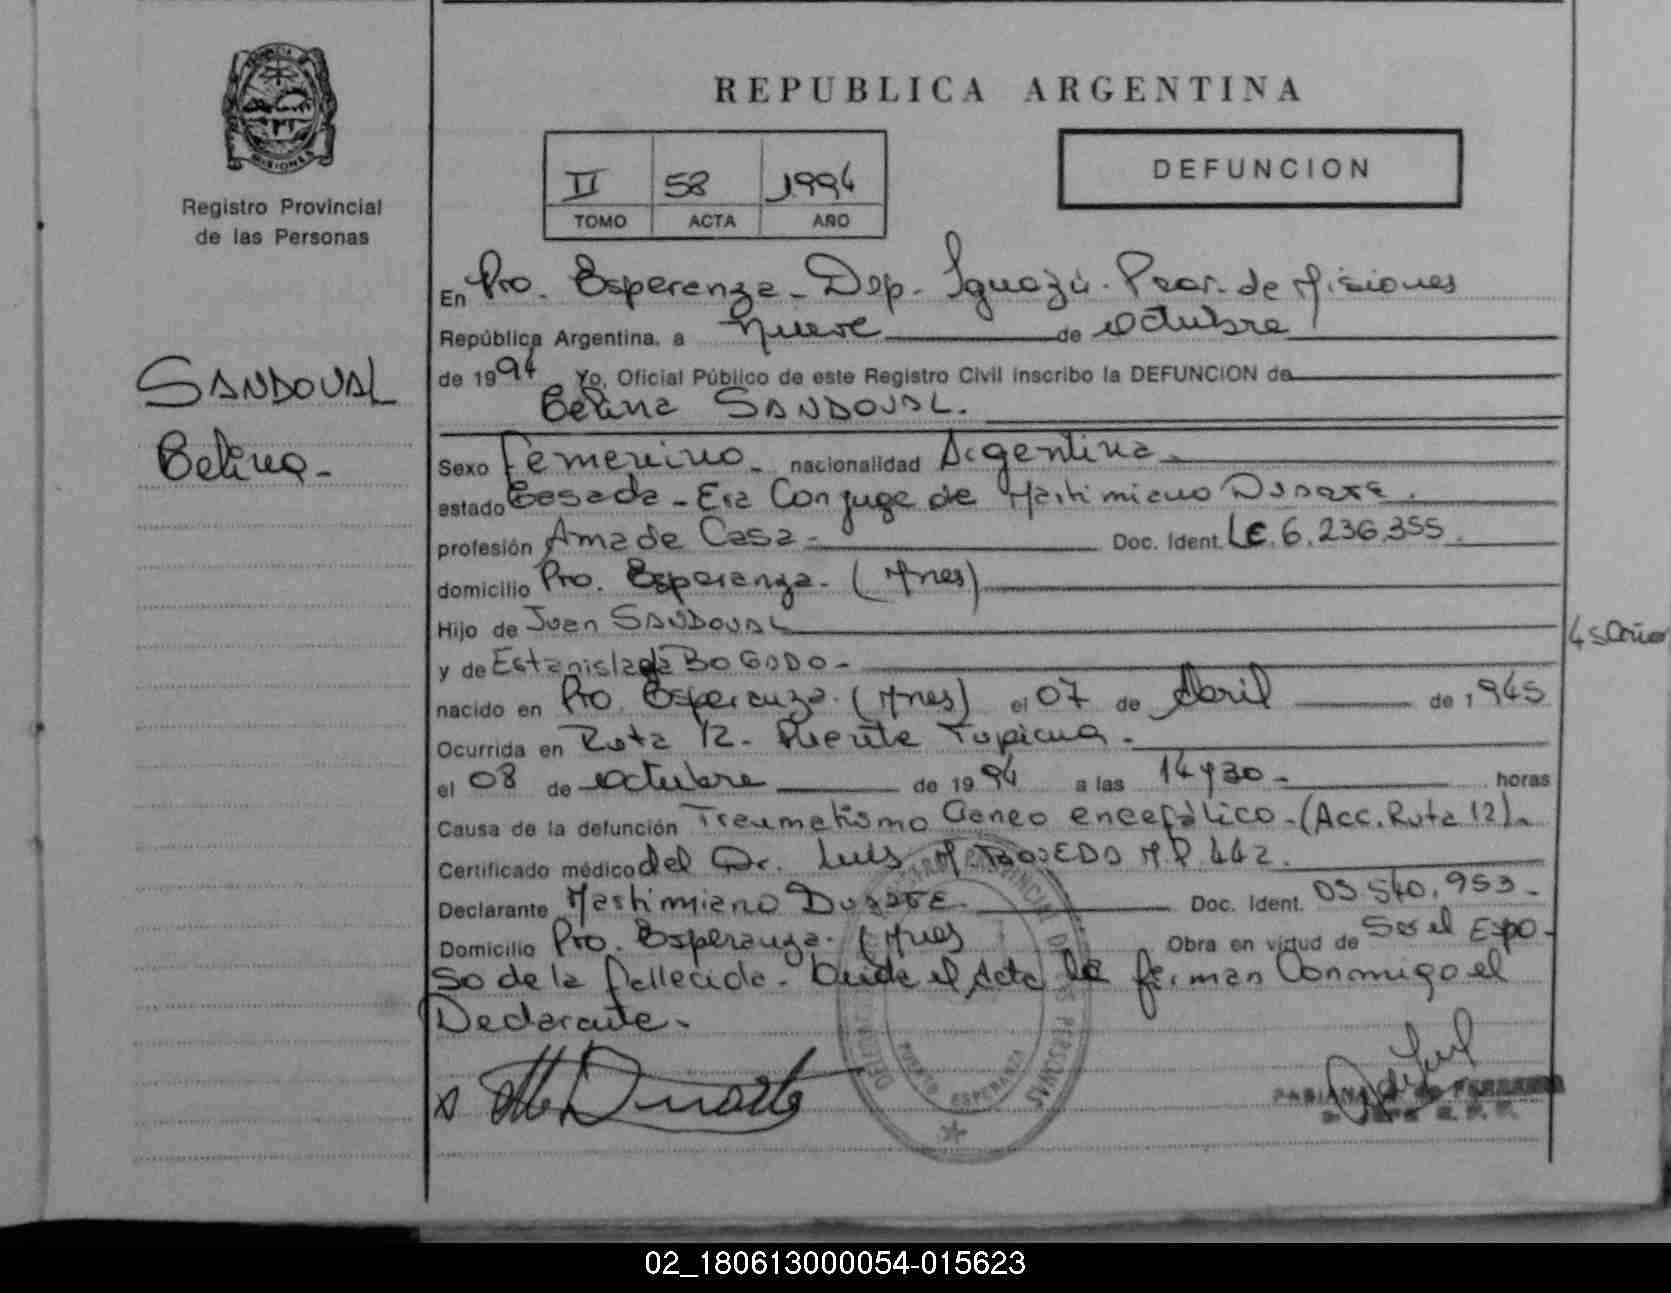 REPUBLICA ARGENTINA
DEFUNCION
II 58 1994
TOMO ACTA AÑO
Registro Provincial
de las Personas
SANDOVAL
Belina-
En Pto. Esperanza - Dep. Iguazú. Prov. de Misiones
República Argentina, a nueve de octubre
de 1994 Yo, Oficial Público de este Registro Civil inscribo la DEFUNCION de
Belina SANDOVAL.
Sexo Femenino - nacionalidad Argentina -
estado Casada - Era Conjuge de Martimiano Duarte.
profesión Ama de Casa - Doc. Ident. LC. 6.236.355.
domicilio Pto. Esperanza. (Mnes)
Hijo de Juan SANDOVAL
45 Años
y de Estanislada BOGADO -
nacido en Pto. Esperanza. (Mnes) el 07 de Abril de 1945
Ocurrida en Ruta 12 - Puente Tupicua. -
el 08 de octubre de 1994 a las 14 y 30 - horas
Causa de la defunción Traumatismo Craneo encefálico - (Acc. Ruta 12).
Certificado médico del Dr. Luis M.P. 442.
Declarante Martimiano DUARTE. Doc. Ident. 03.540.953 -
Domicilio Pto. Esperanza. (Mnes) Obra en virtud de Ser el Espo-
so de la fallecida. Leída el Acta la firman Conmigo el
Declarante. -
PROVINCIA DE LAS PERSONAS
PUERTO ESPERANZA
x Duarte
02_180613000054-015623